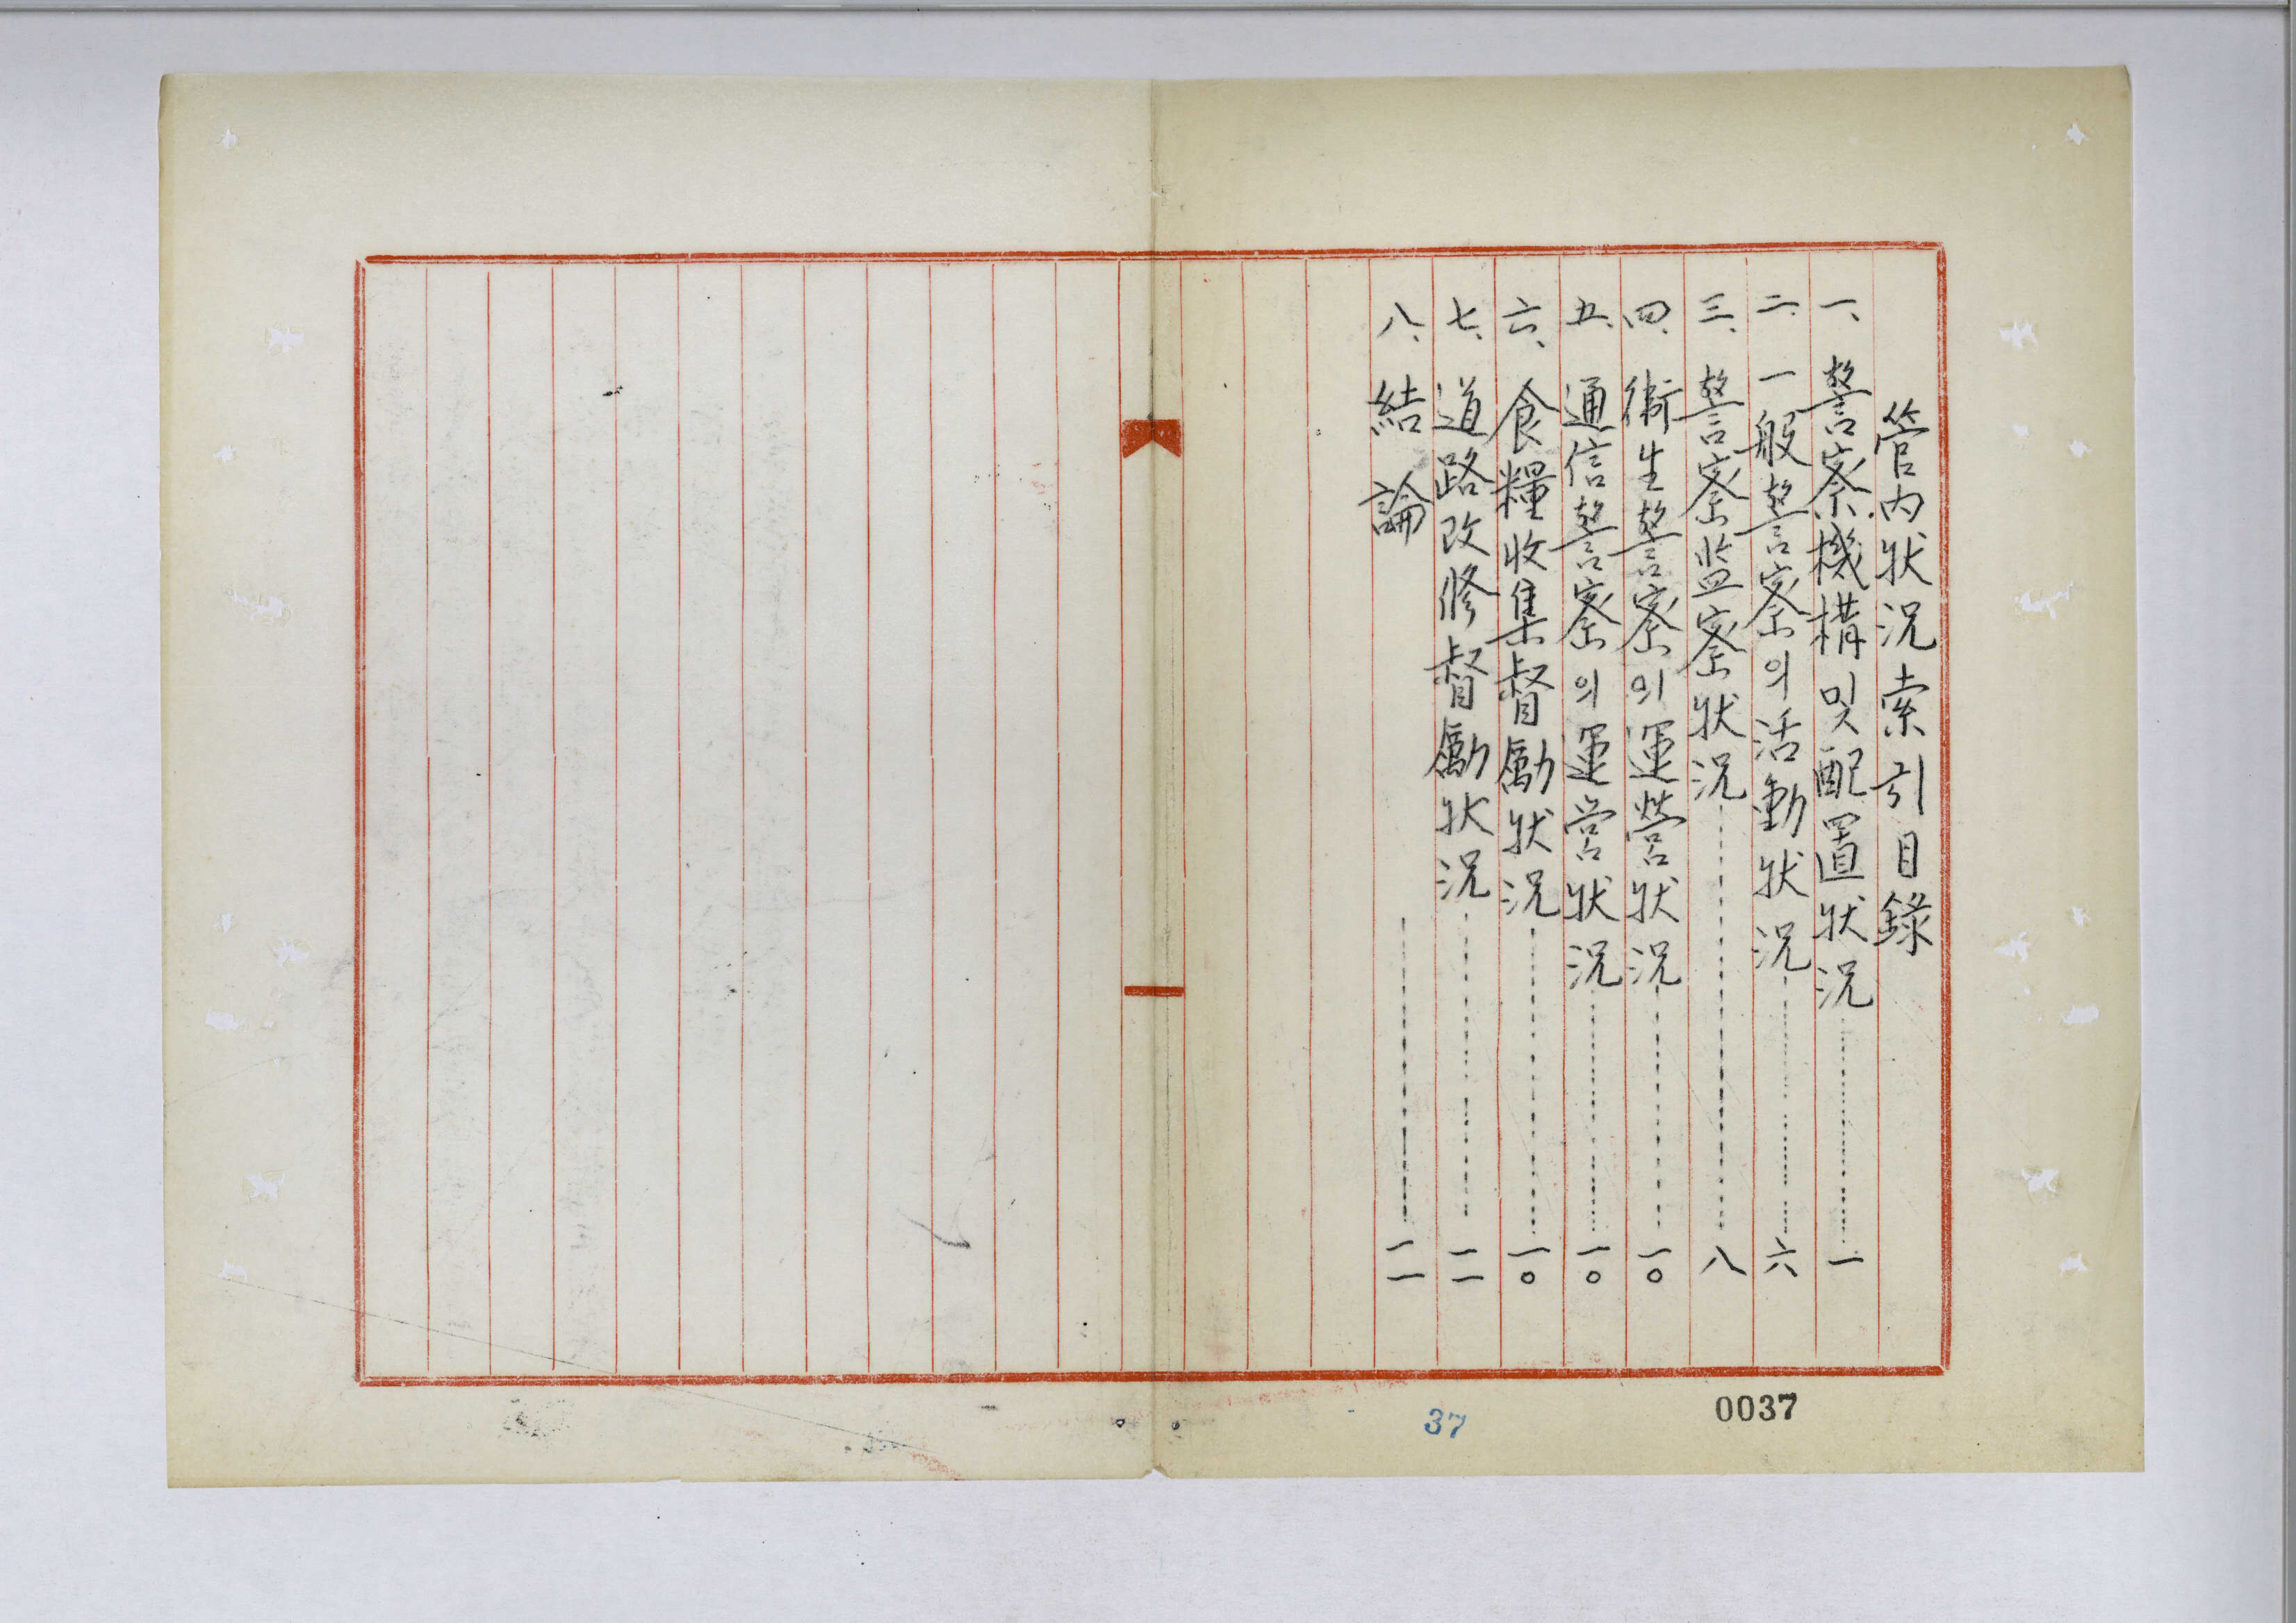 管內狀況索引目錄
一、警察機構및配置狀況………一
二、一般警察의活動狀況………六
三、警察监察狀況………八
四、衛生警察의運營狀況………一〇
五、通信警察의運営狀況………一〇
六、食糧收集督勵狀況………一〇
七、道路改修督勵狀況………一一
八、結論………一一
37
0037